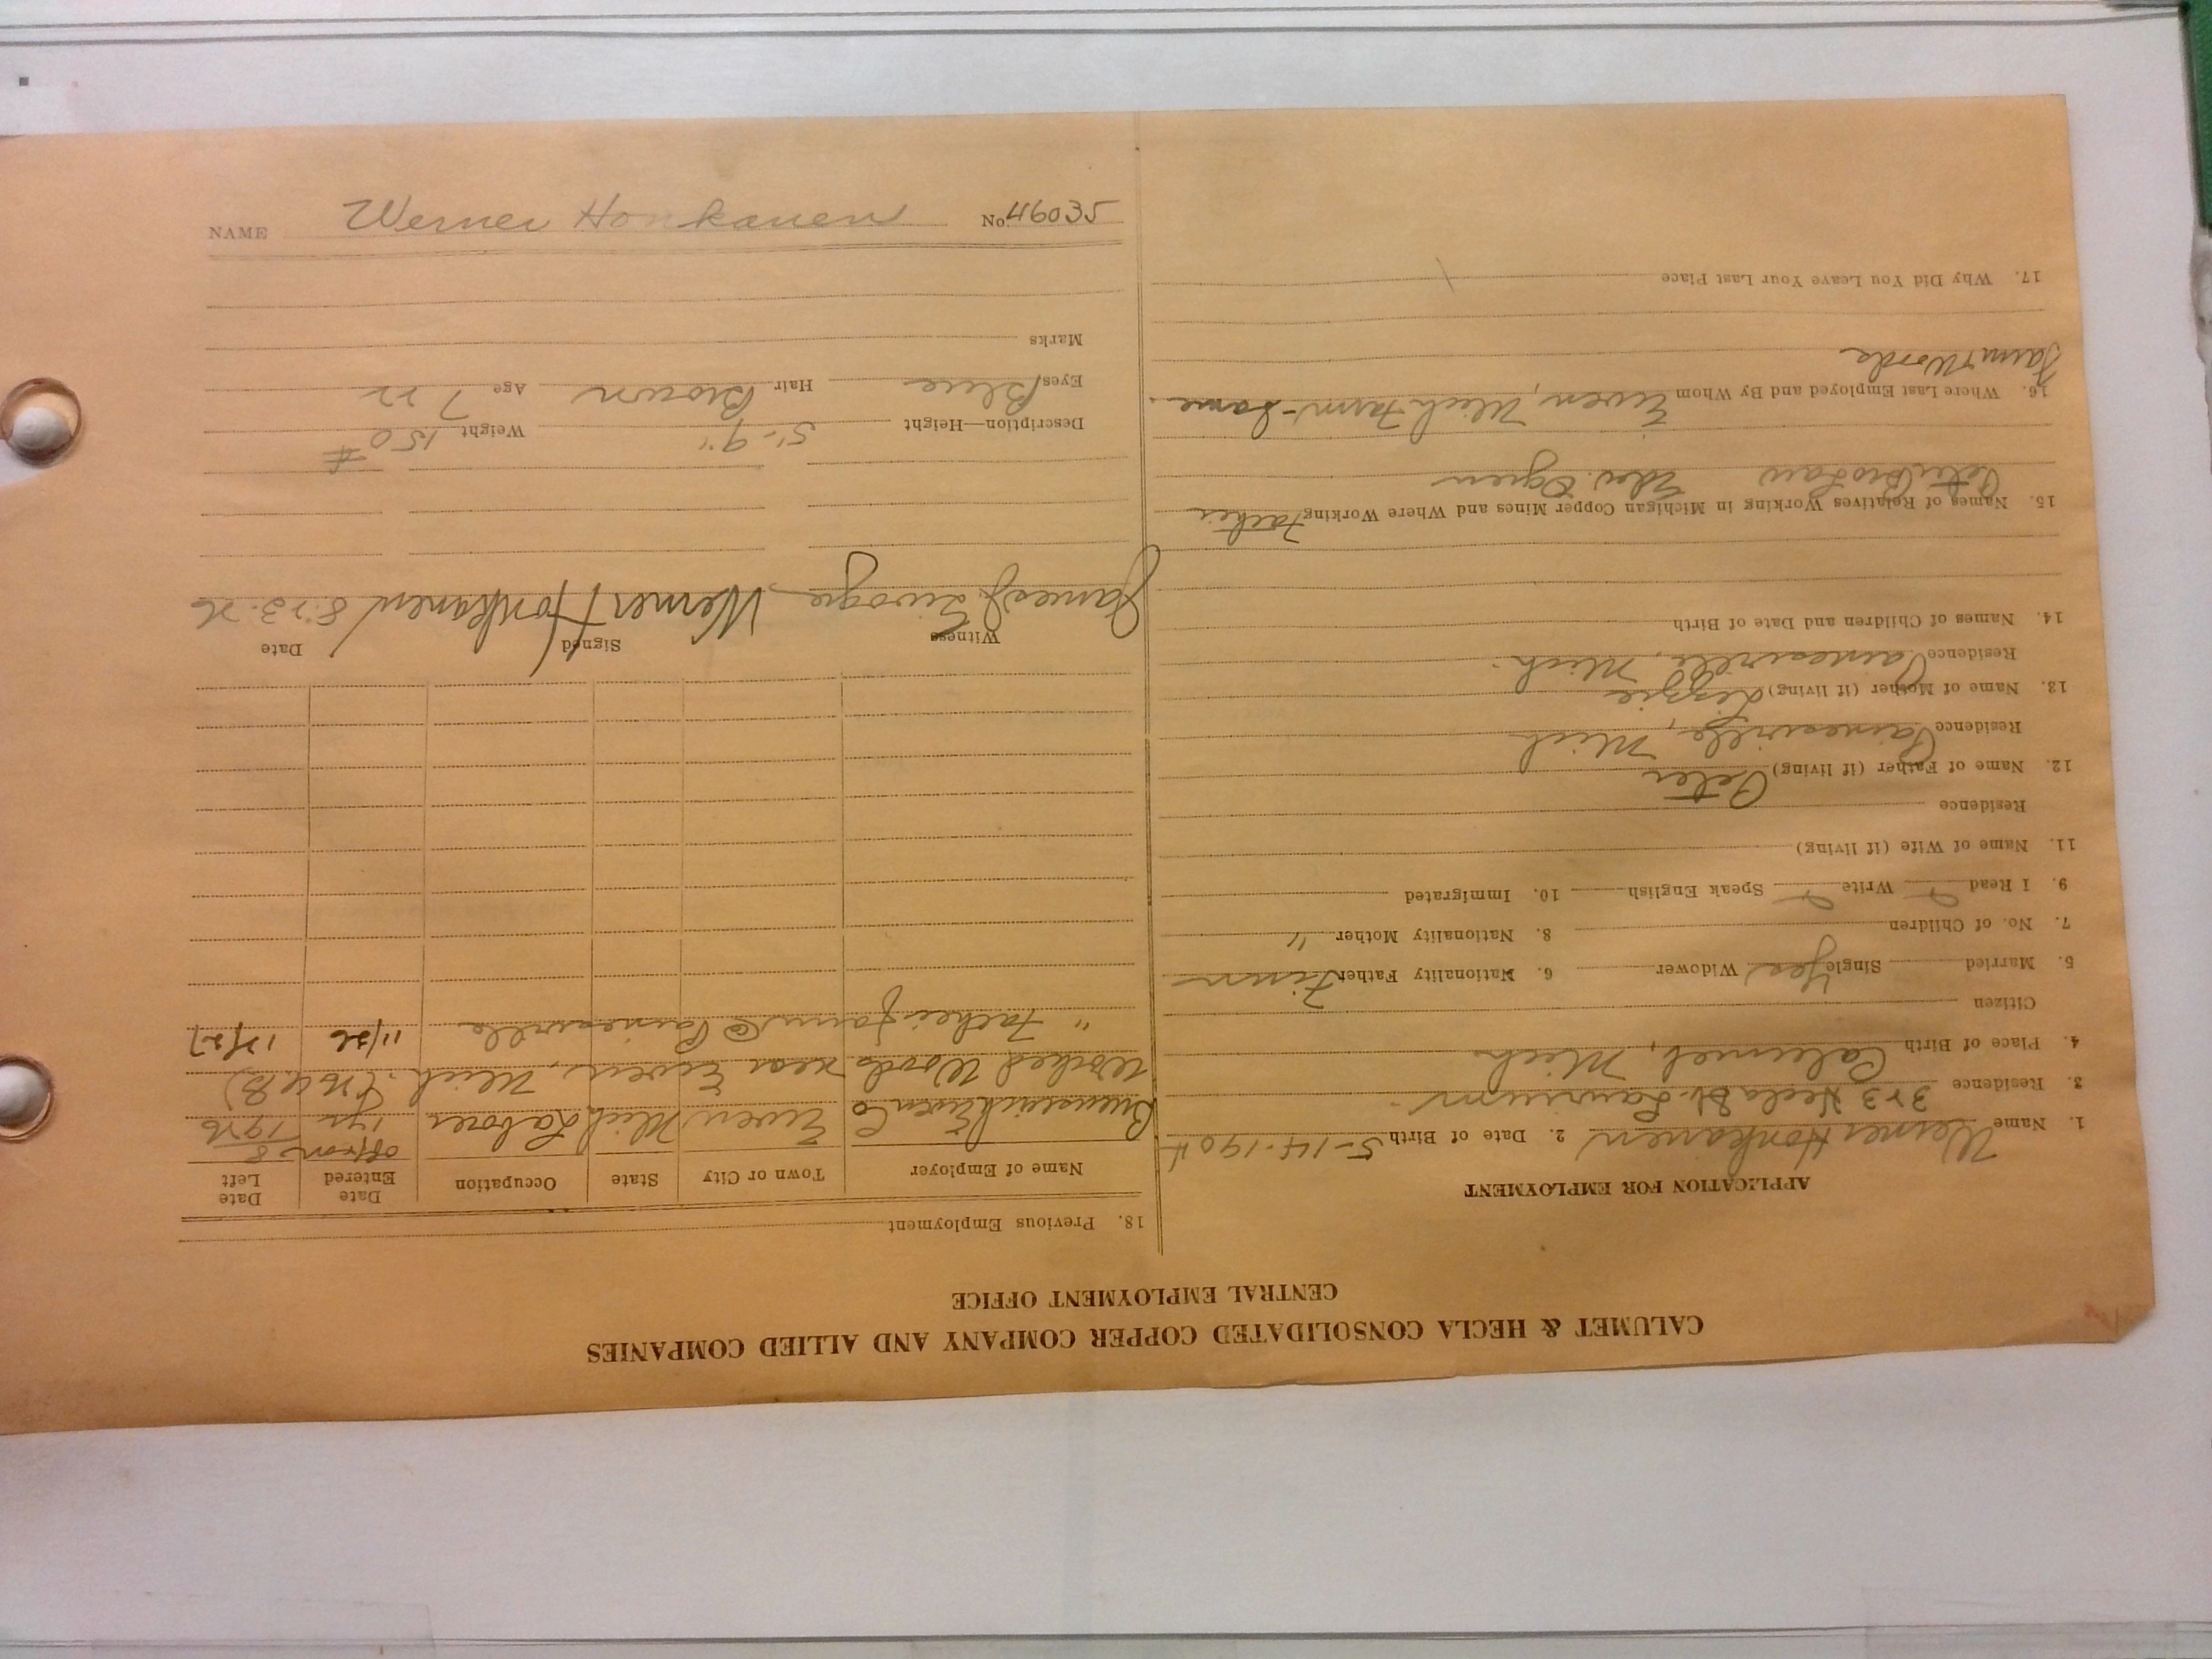 CALUMET & HECLA CONSOLIDATED COPPER COMPANY AND ALLIED COMPANIES
CENTRAL EMPLOYMENT OFFICE
APPLICATION FOR EMPLOYMENT
1. Name Werner Honkanen 2. Date of Birth 5-14-1904
3. Residence 323 Hecla St. Laurium
4. Place of Birth Calumet, Mich
Citizen
5. Married Single Yes Widower 6. Nationality Father Finn
7. No. of Children 8. Nationality Mother "
9. I Read Write Speak English 10. Immigrated
11. Name of Wife (if living)
Residence
12. Name of Father (if living) Peter
Residence Painesville, Mich
13. Name of Mother (if living) Lizzie
Residence Painesville, Mich.
14. Names of Children and Date of Birth
15. Names of Relatives Working in Michigan Copper Mines and Where Working Father
Peter Bro Law Edw. Ogren
16. Where Last Employed and By Whom Ewen, Mich Farm - Same.
Farm & Woods
17. Why Did You Leave Your Last Place
18. Previous Employment
Name of Employer Town or City State Occupation Date Entered Date Left
Ewen Co Ewen Mich Laborer off & on 1 yr 8 1926
Worked Woods near Ewen, Mich.
" Father farm @ Painesville 11/26 12/27
Witness Signed Date
James J. Werner Honkanen 8-23-26
Description—Height 5'-9" Weight 150 #
Eyes Blue Hair Brown Age 22
Marks
NAME Werner Honkanen No. 46035